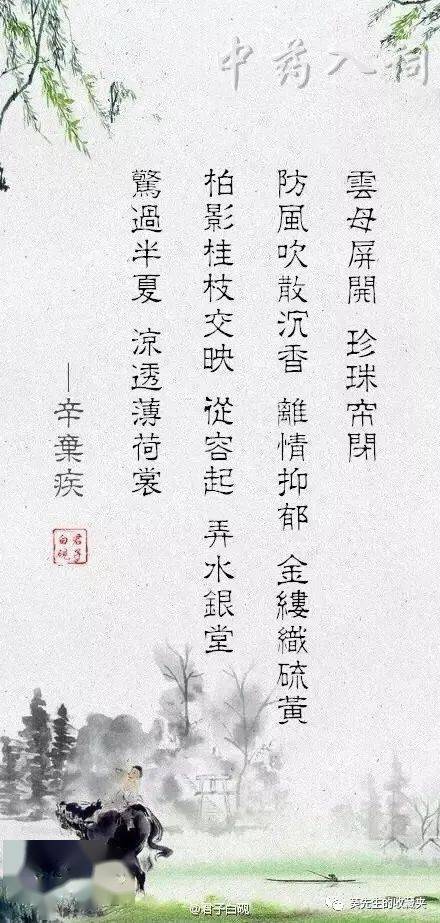 中药入词
雲母屏開 珍珠帘閉
防風吹散沉香 離情抑郁 金縷織硫黃
柏影桂枝交映 從容起 弄水銀堂
驚過半夏 涼透薄荷裳
—辛棄疾
君子
白硯
@君子白硯
葵先生的收藏夹